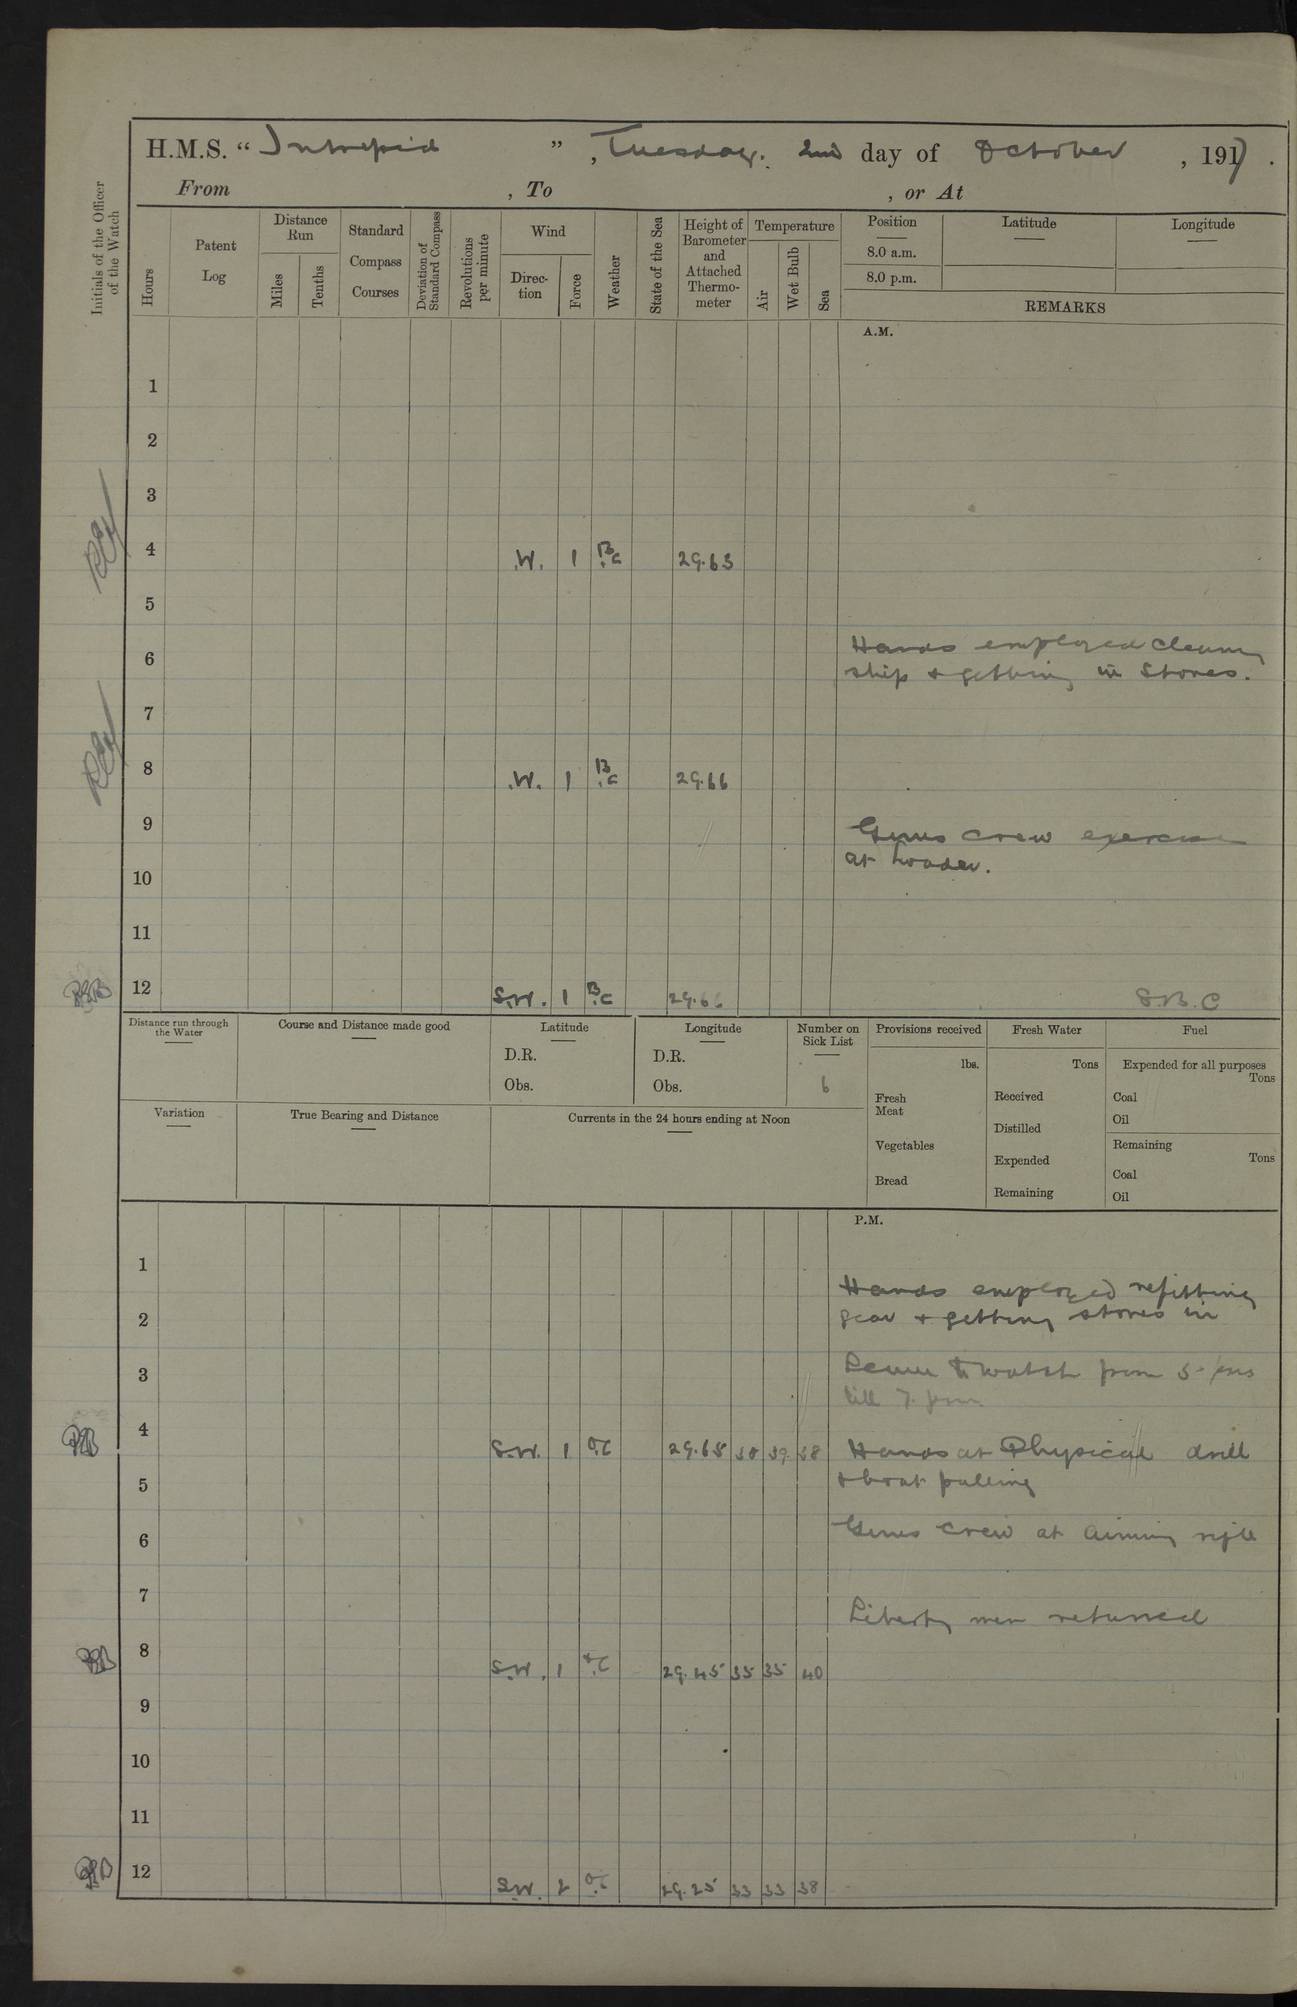 H.M.S. " Intrepid ", Tuesday. 2nd day of October, 1917.
From , To , or At
Initials of the Officer of the Watch
Hours
Patent Log
Distance Run
Miles
Tenths
Standard Compass Courses
Deviation of Standard Compass
Revolutions per minute
Wind
Direction
Force
Weather
State of the Sea
Height of Barometer and Attached Thermometer
Temperature
Air
Wet Bulb
Sea
Position
8.0 a.m.
8.0 p.m.
Latitude
Longitude
REMARKS
A.M.
1
2
3
4 W. 1 B.C 29.63
5
6 Hands employed cleaning
ship & getting in Stores.
7
8 W. 1 B.C 29.66
9 Guns crew exercise
at loader.
10
11
12 S.W. 1 B.C 29.66 S.B.C
Distance run through the Water
Course and Distance made good
Latitude
D.R.
Obs.
Longitude
D.R.
Obs.
Number on Sick List
6
Provisions received
lbs.
Fresh Meat
Vegetables
Bread
Fresh Water
Tons
Received
Distilled
Expended
Remaining
Fuel
Expended for all purposes
Tons
Coal
Oil
Remaining
Tons
Coal
Oil
Variation
True Bearing and Distance
Currents in the 24 hours ending at Noon
P.M.
1
Hands employed refitting
2 gear & getting stores in
3 Leave to watch from 5. pm
till 7. pm
4 S.W. 1 O.C 29.65 38 39 38 Hands at Physical drill
5 & boat pulling
6 Guns crew at aiming rifle
7 Liberty men returned
8 S.W. 1 O.C 29.45 35 35 40
9
10
11
12 S.W. 2 O.C 29.25 33 33 38